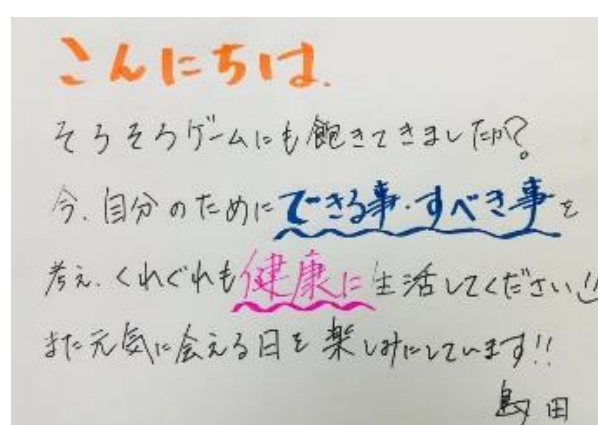 こんにちは.
そろそろゲームにも飽きてきましたか?
今、自分のためにできる事・すべき事を
考え、くれぐれも健康に生活してください!!
また元気に会える日を楽しみにしています!!
島田